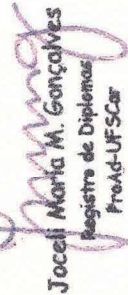 Joceli Maria M. Gonçalves
Registro de Diplomas
ProAd-UFSCar